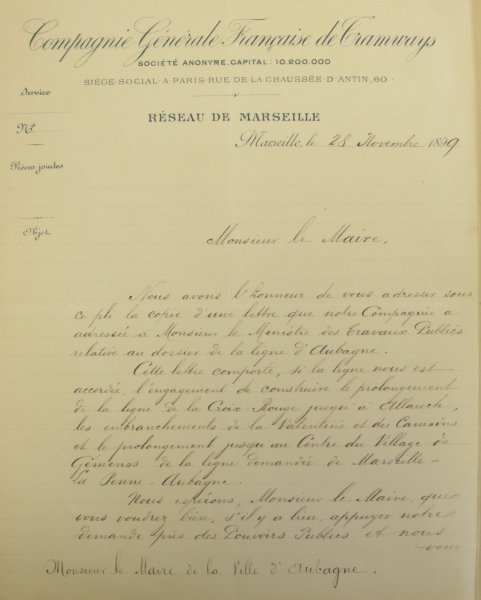 Compagnie Générale Française de Tramways
SOCIÉTÉ ANONYME, CAPITAL : 10.200.000
SIÈGE SOCIAL A PARIS RUE DE LA CHAUSSÉE D'ANTIN, 60
Service
RÉSEAU DE MARSEILLE
N°
Marseille, le 23 Novembre 1899
Pièces jointes
Objet
Monsieur le Maire,
Nous avons l'honneur de vous adresser sous
ce pli la copie d'une lettre que notre Compagnie a
adressée à Monsieur le Ministre des Travaux Publics
relative au dossier de la ligne d'Aubagne.
Cette lettre comporte, si la ligne nous est
accordée, l'engagement de construire le prolongement
de la ligne de la Croix-Rouge jusqu'à Allauch,
les embranchements de la Valentine et des Camoins
et le prolongement jusqu'au Centre du Village de
Gémenos de la ligne demandée de Marseille-
La Penne-Aubagne.
Nous espérons, Monsieur le Maire, que
vous voudrez bien, s'il y a lieu, appuyer notre
demande près des Pouvoirs Publics et nous
vous
Monsieur le Maire de la Ville d'Aubagne.